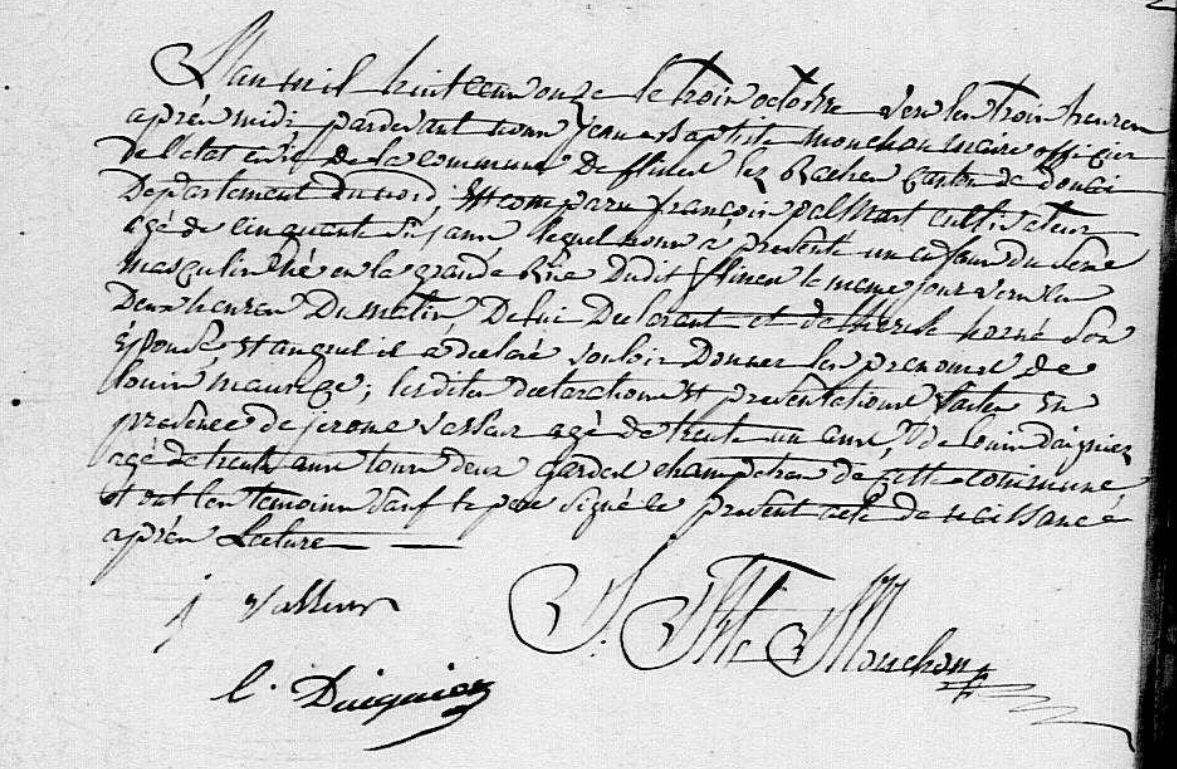 L'an mil huit cent onze le trois octobre vers les trois heures
après midi, pardevant nous jean Baptiste Mouchon maire officier
de l'état civil de la commune De flines lez Raches Canton de douai
Département du nord, est comparu françois pelmart cultivateur
agé de cinquante six ans lequel nous à présenté un enfant du sexe
masculin né en la grande Rüe dudit flines le meme jour vers les
Deux heures Du matin De lui Declarant et de therese horné son
épouse, et auquel il a déclaré vouloir Donner les prenoms de
louis maurice; lesdites declarations et presentations faites en
présence de jerome Vasseur agé de trente un ans, & de louis daigniez
agé de trente ans tous deux gardes champêtres de cette commune,
et ont les temoins sauf le père signé le présent acte de naissance
après Lecture
j Vasseur
J. Bte Mouchon
l. Daigniez